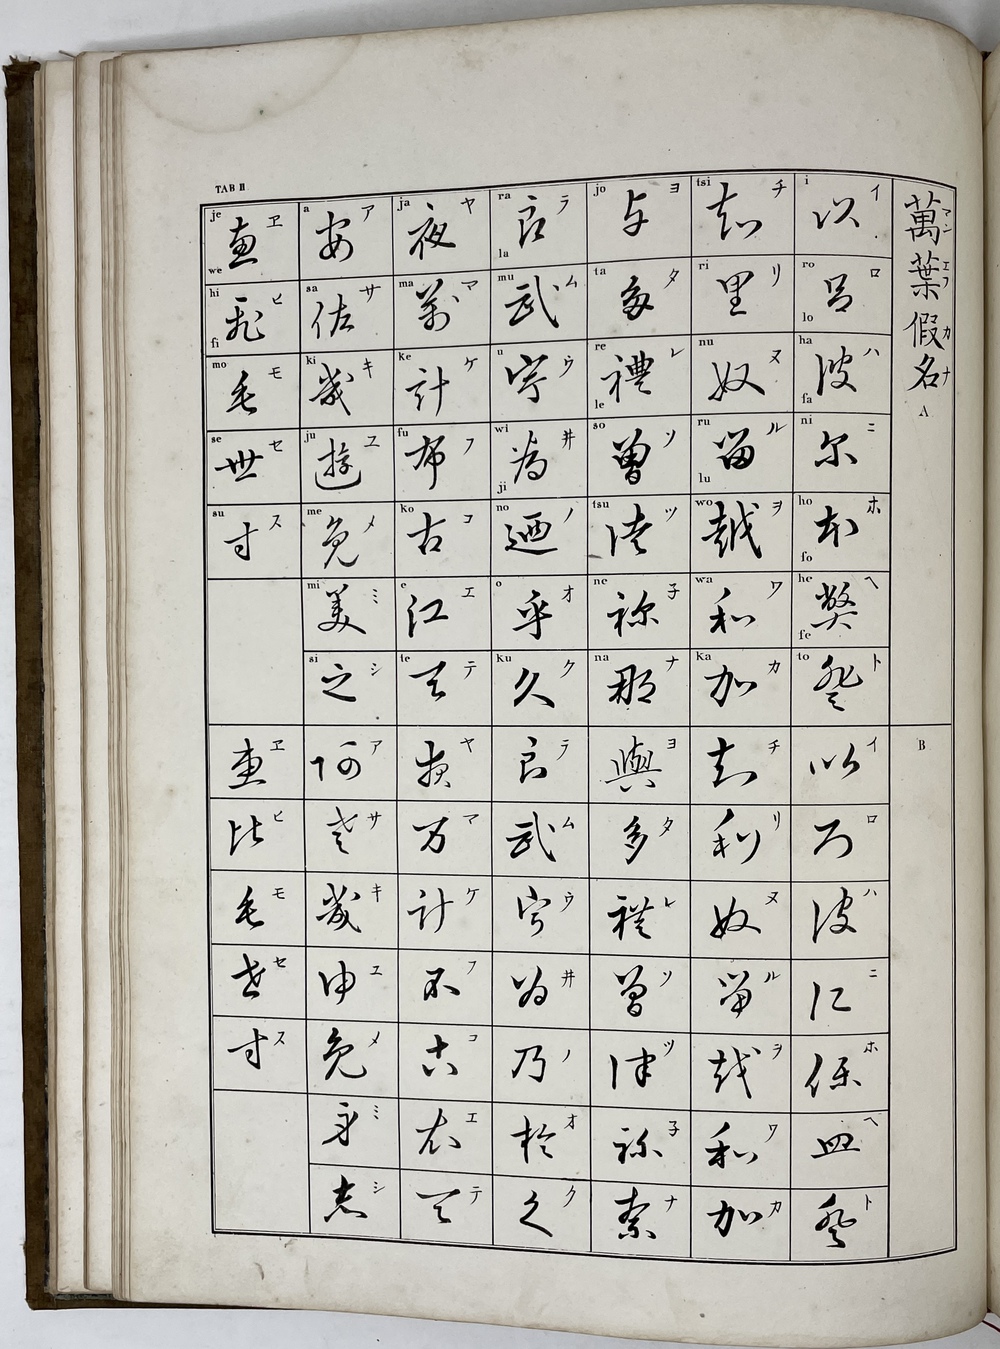 TAB II.
萬葉假名
マンエフカナ
A
i 以 イ
ro 呂 ロ lo
ha 波 ハ fa
ni 尓 ニ
ho 本 ホ fo
he 弊 ヘ fe
to 登 ト
tsi 知 チ
ri 里 リ
nu 奴 ヌ
ru 留 ル lu
wo 越 ヲ
wa 和 ワ
ka 加 カ
jo 与 ヨ
ta 多 タ
re 禮 レ le
so 曽 ソ
tsu 津 ツ
ne 祢 子
na 那 ナ
ra 良 ラ la
mu 武 ム
u 宇 ウ
wi 為 井 ji
no 廼 ノ
o 乎 オ
ku 久 ク
ja 夜 ヤ
ma 萬 マ
ke 計 ケ
fu 布 フ
ko 古 コ
e 江 エ
te 天 テ
a 安 ア
sa 佐 サ
ki 幾 キ
ju 遊 ユ
me 免 メ
mi 美 ミ
si 之 シ
je 恵 ヱ we
hi 飛 ヒ fi
mo 毛 モ
se 世 セ
su 寸 ス
B
以 イ
ろ ロ
波 ハ
仁 ニ
保 ホ
皿 ヘ
登 ト
知 チ
利 リ
奴 ヌ
留 ル
越 ヲ
和 ワ
加 カ
與 ヨ
多 タ
礼 レ
曽 ソ
津 ツ
祢 子
奈 ナ
良 ラ
武 ム
宇 ウ
為 井
乃 ノ
於 オ
久 ク
ヤ
万 マ
計 ケ
不 フ
古 コ
衣 エ
天 テ
阿 ア
左 サ
幾 キ
由 ユ
免 メ
身 ミ
志 シ
恵 ヱ
比 ヒ
毛 モ
世 セ
寸 ス